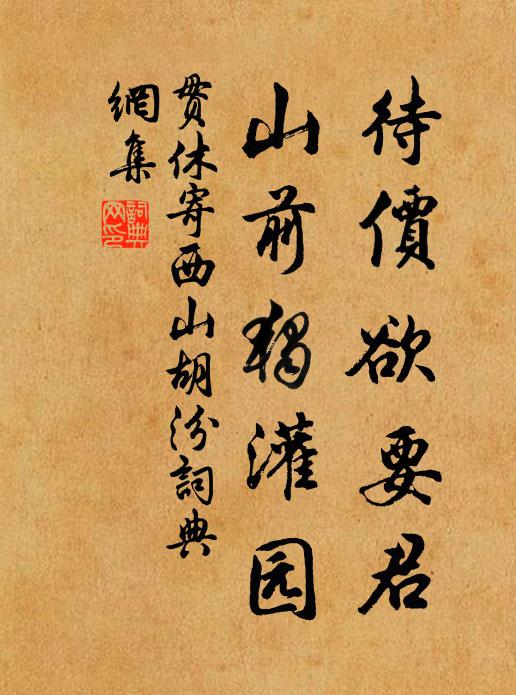 待價欲要君
山前獨灌园
贯休寄西山胡汾詞典
網集
詞典网印